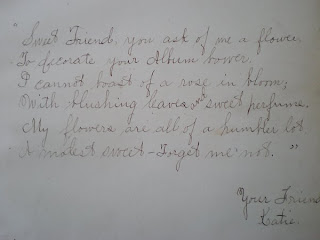 "Sweet Friend, you ask of me a flower,
To decorate your Album bower.
I cannot boast of a rose in bloom,
With blushing leaves and sweet perfume.
My flowers are all of a humbler lot
A modest sweet-Forget me not. "
Your Friend
Katie.